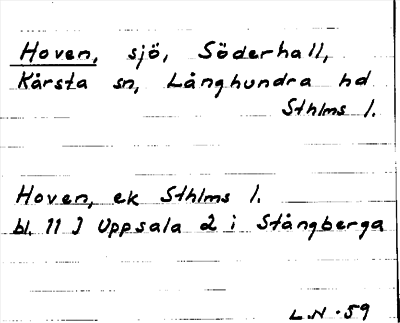 Hoven, sjö, Söderhall,
Kårsta sn, Långhundra hd
Sthlms l.
Hoven, ek Sthlms l.
bl. 11 J Uppsala 2 i Stångberga
L.N. 59